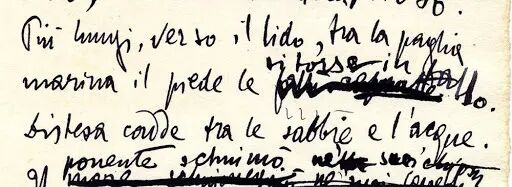 Più lungi, verso il lido, tra la paglia
si torse in
marina il piede le fallo.
Distesa cadde tra le sabbie e l'acque.
ponente schiumò
Il ne' suoi